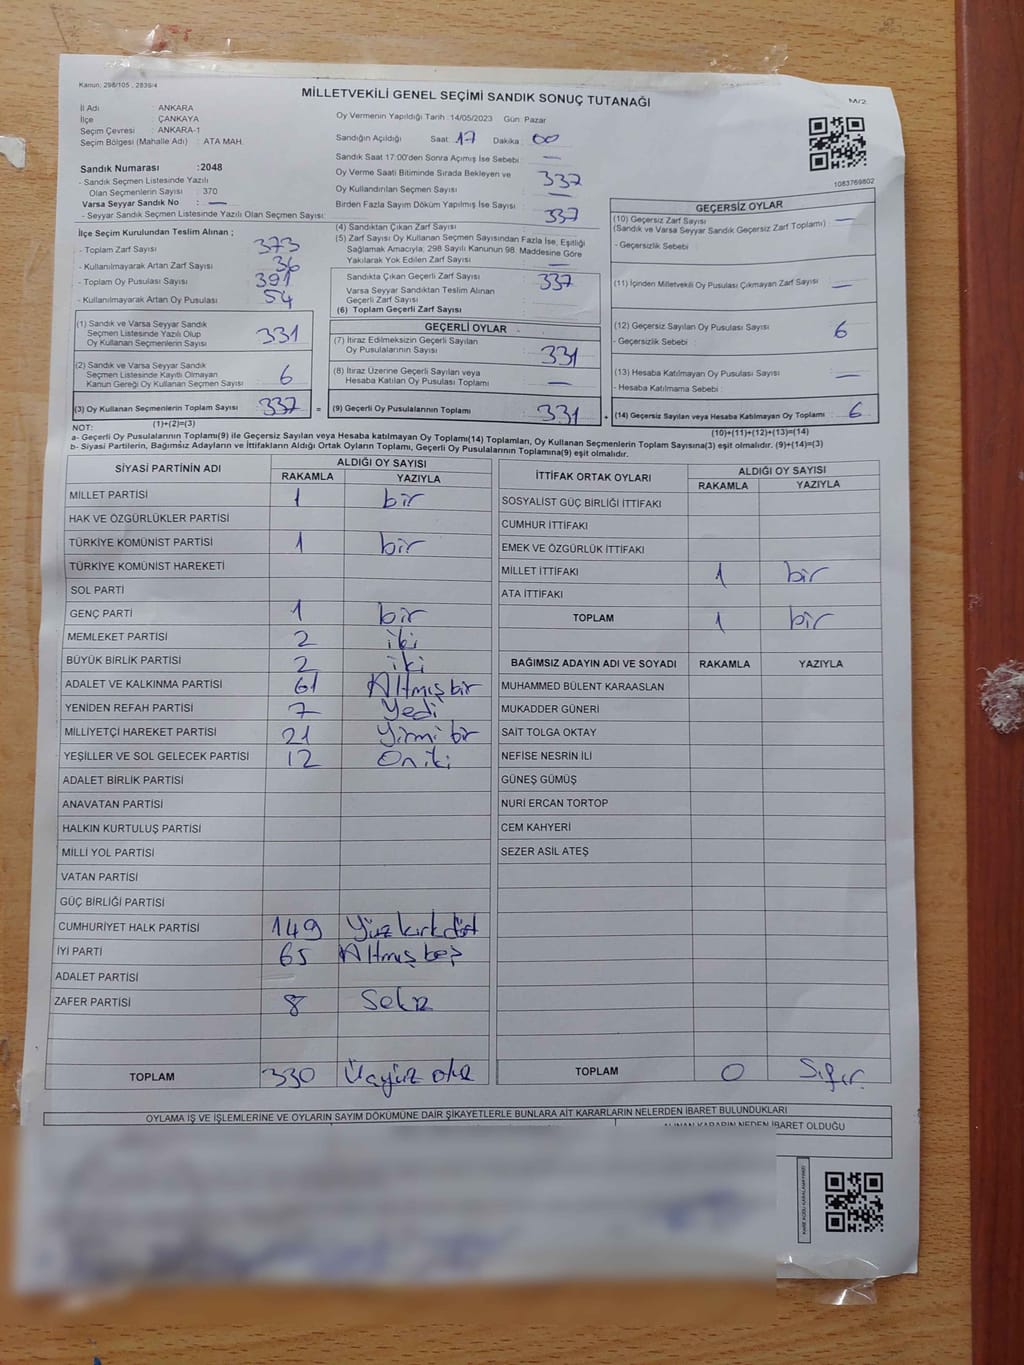 Kanun; 298/105 , 2839/4
MİLLETVEKİLİ GENEL SEÇİMİ SANDIK SONUÇ TUTANAĞI
M/2
İl Adı : ANKARA
İlçe : ÇANKAYA
Seçim Çevresi : ANKARA-1
Seçim Bölgesi (Mahalle Adı) : ATA MAH.
Sandık Numarası :2048
- Sandık Seçmen Listesinde Yazılı
Olan Seçmenlerin Sayısı : 370
Varsa Seyyar Sandık No : —
- Seyyar Sandık Seçmen Listesinde Yazılı Olan Seçmen Sayısı:
İlçe Seçim Kurulundan Teslim Alınan ;
- Toplam Zarf Sayısı : 373
- Kullanılmayarak Artan Zarf Sayısı : 36
- Toplam Oy Pusulası Sayısı : 391
- Kullanılmayarak Artan Oy Pusulası : 54
(1) Sandık ve Varsa Seyyar Sandık
Seçmen Listesinde Yazılı Olup
Oy Kullanan Seçmenlerin Sayısı : 331
(2) Sandık ve Varsa Seyyar Sandık
Seçmen Listesinde Kayıtlı Olmayan
Kanun Gereği Oy Kullanan Seçmen Sayısı : 6
(3) Oy Kullanan Seçmenlerin Toplam Sayısı : 337 =
(1)+(2)=(3)
Oy Vermenin Yapıldığı Tarih : 14/05/2023 Gün: Pazar
Sandığın Açıldığı Saat: 17 Dakika : 00
Sandık Saat 17:00'den Sonra Açılmış İse Sebebi : —
Oy Verme Saati Bitiminde Sırada Bekleyen ve
Oy Kullandırılan Seçmen Sayısı : 337
Birden Fazla Sayım Döküm Yapılmış İse Sayısı : —
(4) Sandıktan Çıkan Zarf Sayısı : 337
(5) Zarf Sayısı Oy Kullanan Seçmen Sayısından Fazla İse, Eşitliği
Sağlamak Amacıyla, 298 Sayılı Kanunun 98. Maddesine Göre
Yakılarak Yok Edilen Zarf Sayısı : —
Sandıkta Çıkan Geçerli Zarf Sayısı : 337
Varsa Seyyar Sandıktan Teslim Alınan
Geçerli Zarf Sayısı :
(6) Toplam Geçerli Zarf Sayısı :
GEÇERLİ OYLAR
(7) İtiraz Edilmeksizin Geçerli Sayılan
Oy Pusulalarının Sayısı : 331
(8) İtiraz Üzerine Geçerli Sayılan veya
Hesaba Katılan Oy Pusulası Toplamı : —
(9) Geçerli Oy Pusulalarının Toplamı : 331 +
1083769802
GEÇERSİZ OYLAR
(10) Geçersiz Zarf Sayısı : —
(Sandık ve Varsa Seyyar Sandık Geçersiz Zarf Toplamı)
- Geçersizlik Sebebi :
(11) İçinden Milletvekili Oy Pusulası Çıkmayan Zarf Sayısı : —
(12) Geçersiz Sayılan Oy Pusulası Sayısı : 6
- Geçersizlik Sebebi :
(13) Hesaba Katılmayan Oy Pusulası Sayısı : —
- Hesaba Katılmama Sebebi :
(14) Geçersiz Sayılan veya Hesaba Katılmayan Oy Toplamı : 6
(10)+(11)+(12)+(13)=(14)
NOT:
a- Geçerli Oy Pusulalarının Toplamı(9) ile Geçersiz Sayılan veya Hesaba katılmayan Oy Toplamı(14) Toplamları, Oy Kullanan Seçmenlerin Toplam Sayısına(3) eşit olmalıdır. (9)+(14)=(3)
b- Siyasi Partilerin, Bağımsız Adayların ve İttifakların Aldığı Ortak Oyların Toplamı, Geçerli Oy Pusulalarının Toplamına(9) eşit olmalıdır.
SİYASİ PARTİNİN ADI ALDIĞI OY SAYISI
RAKAMLA YAZIYLA
MİLLET PARTİSİ 1 bir
HAK VE ÖZGÜRLÜKLER PARTİSİ
TÜRKİYE KOMÜNİST PARTİSİ 1 bir
TÜRKİYE KOMÜNİST HAREKETİ
SOL PARTİ
GENÇ PARTİ 1 bir
MEMLEKET PARTİSİ 2 iki
BÜYÜK BİRLİK PARTİSİ 2 iki
ADALET VE KALKINMA PARTİSİ 61 Altmış bir
YENİDEN REFAH PARTİSİ 7 Yedi
MİLLİYETÇİ HAREKET PARTİSİ 21 Yirmi bir
YEŞİLLER VE SOL GELECEK PARTİSİ 12 On iki
ADALET BİRLİK PARTİSİ
ANAVATAN PARTİSİ
HALKIN KURTULUŞ PARTİSİ
MİLLİ YOL PARTİSİ
VATAN PARTİSİ
GÜÇ BİRLİĞİ PARTİSİ
CUMHURİYET HALK PARTİSİ 149 Yüz kırk
İYİ PARTİ 65 Altmış beş
ADALET PARTİSİ
ZAFER PARTİSİ 8 Sekiz
TOPLAM 330 Üçyüz otuz
İTTİFAK ORTAK OYLARI ALDIĞI OY SAYISI
RAKAMLA YAZIYLA
SOSYALİST GÜÇ BİRLİĞİ İTTİFAKI
CUMHUR İTTİFAKI
EMEK VE ÖZGÜRLÜK İTTİFAKI
MİLLET İTTİFAKI 1 bir
ATA İTTİFAKI
TOPLAM 1 bir
BAĞIMSIZ ADAYIN ADI VE SOYADI RAKAMLA YAZIYLA
MUHAMMED BÜLENT KARAASLAN
MUKADDER GÜNERİ
SAİT TOLGA OKTAY
NEFİSE NESRİN İLİ
GÜNEŞ GÜMÜŞ
NURİ ERCAN TORTOP
CEM KAHYERİ
SEZER ASİL ATEŞ
TOPLAM 0 Sıfır
OYLAMA İŞ VE İŞLEMLERİNE VE OYLARIN SAYIM DÖKÜMÜNE DAİR ŞİKAYETLERLE BUNLARA AİT KARARLARIN NELERDEN İBARET BULUNDUKLARI
ALINAN KARARIN NEDEN İBARET OLDUĞU